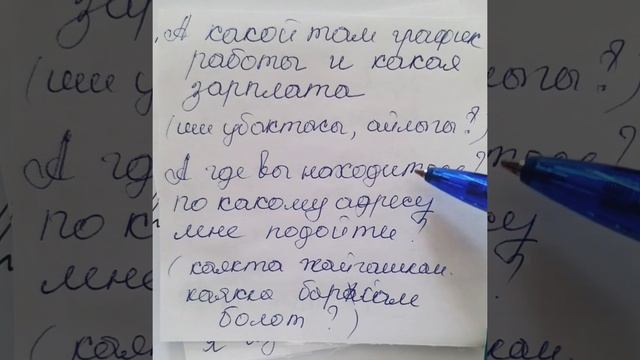 А какой там график
работы и какая
зарплата
(иш убактасы, айлыгы?)
А где вы находитесь?
по какому адресу
мне подойти?
(каякта жайгашкан.
каякка барсам
болот?)